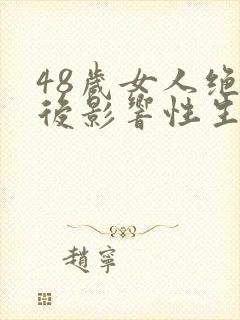 48歲女人绝
後影響性生
趙寧